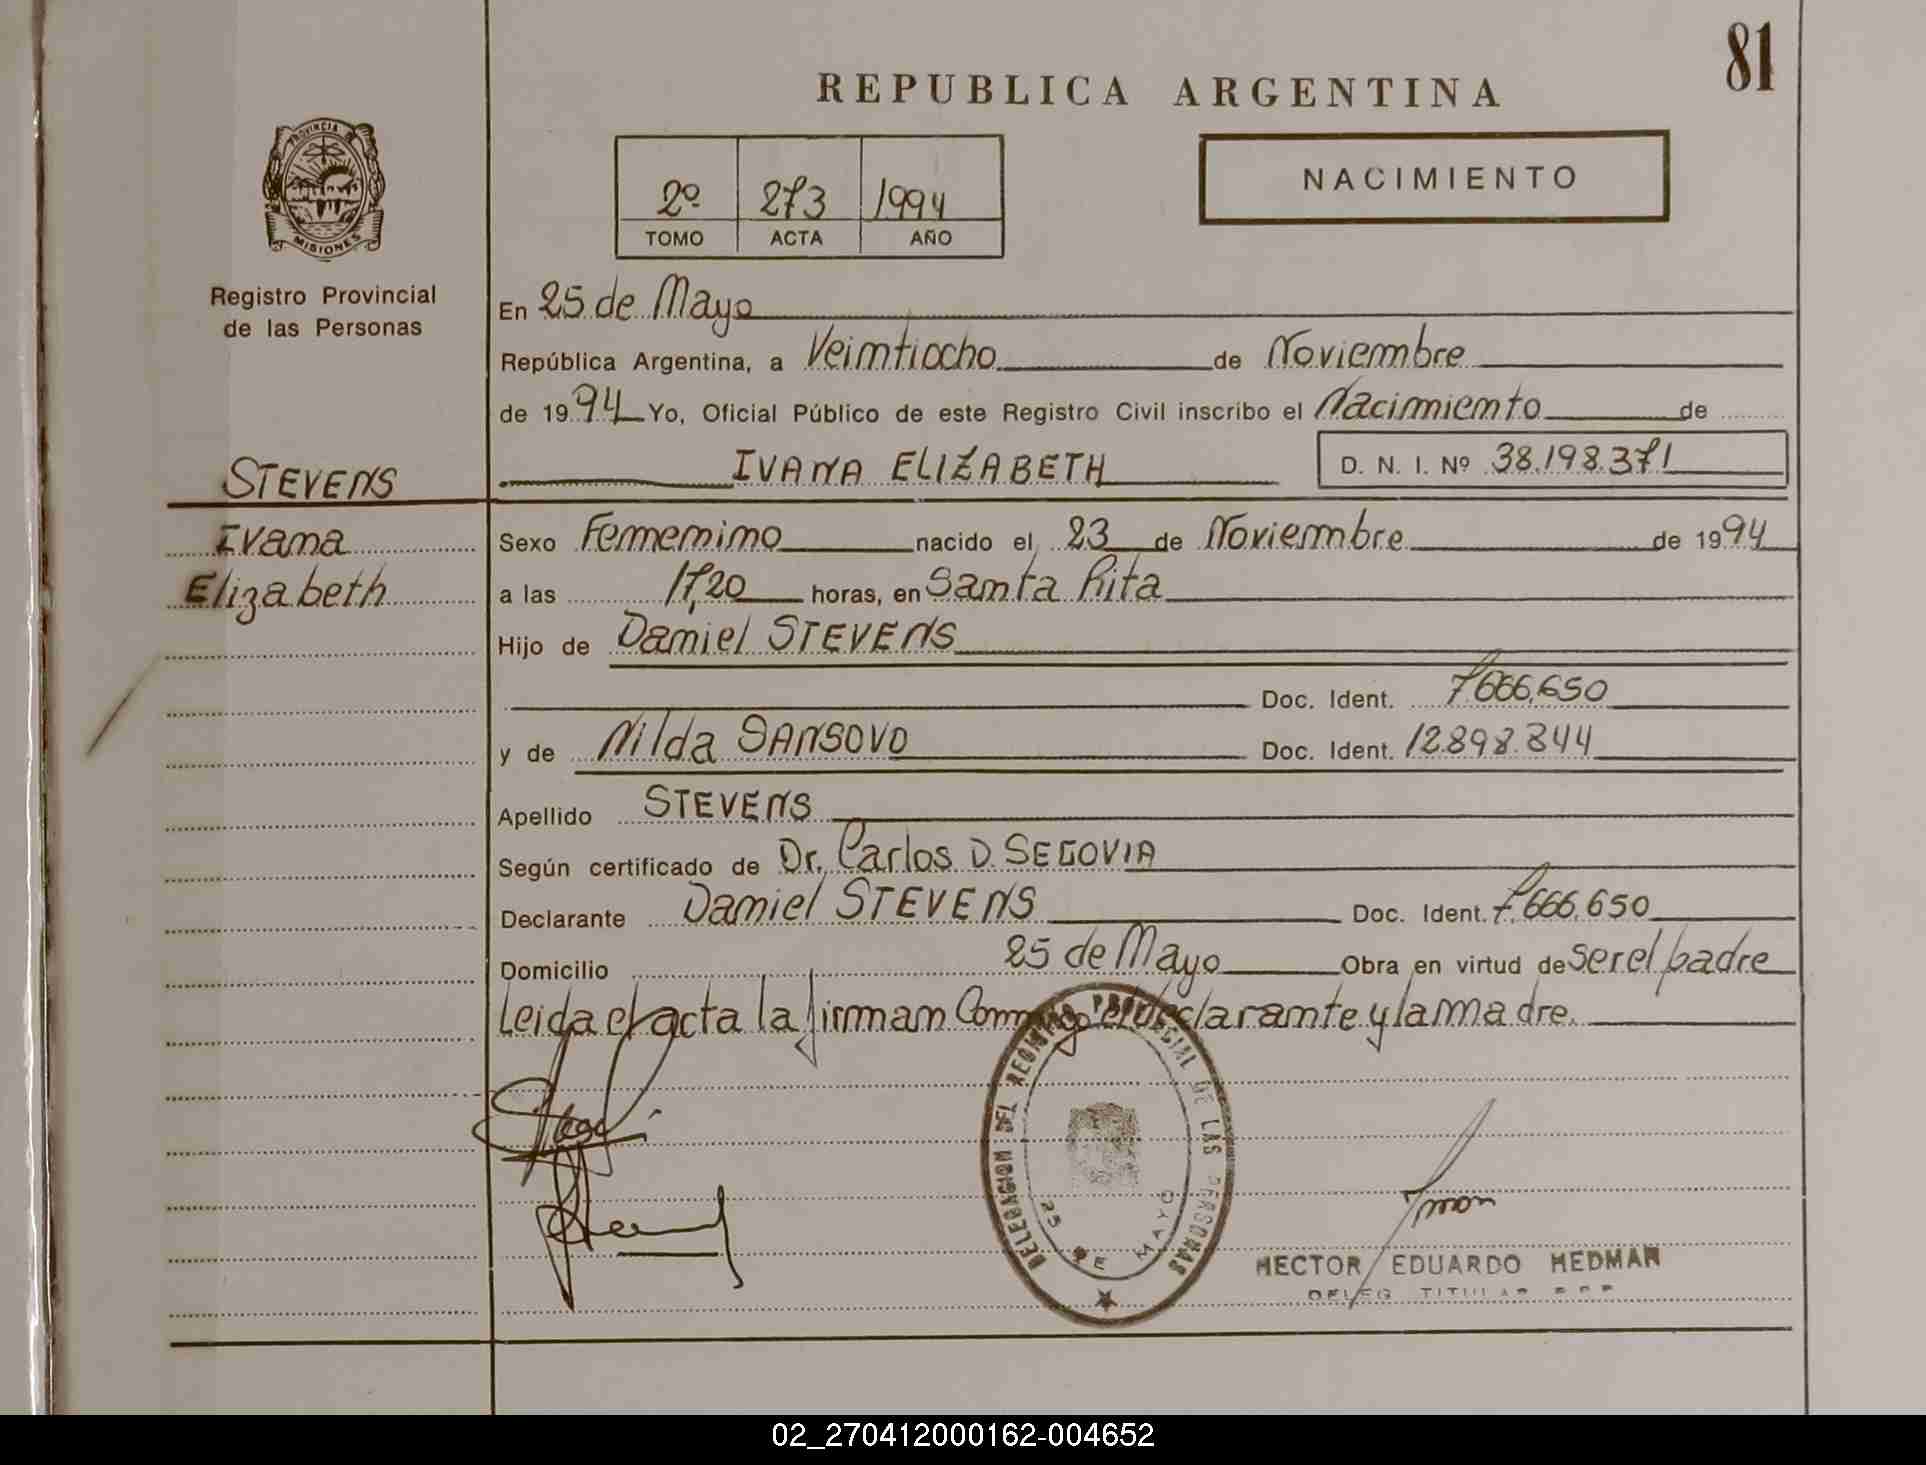 81
REPUBLICA ARGENTINA
NACIMIENTO
2º 273 1994
TOMO ACTA AÑO
PROVINCIA DE
MISIONES
Registro Provincial
de las Personas
En 25 de Mayo
República Argentina, a Veintiocho de Noviembre
de 1994 Yo, Oficial Público de este Registro Civil inscribo el Nacimiento de
STEVENS
IVANA ELIZABETH D. N. I. Nº 38.198.371
Ivana
Elizabeth
Sexo Femenino nacido el 23 de Noviembre de 1994
a las 17,20 horas, en Santa Rita
Hijo de Daniel STEVENS
Doc. Ident. 7.666.650
y de Nilda SANSOVO Doc. Ident. 12.898.844
Apellido STEVENS
Según certificado de Dr. Carlos D. SEGOVIA
Declarante Daniel STEVENS Doc. Ident. 7.666.650
Domicilio 25 de Mayo Obra en virtud de ser el padre
Leida el acta la firman Conmigo el declarante y la madre.
DELEGACION DEL REGISTRO PROVINCIAL DE LAS PERSONAS
25 DE MAYO
HECTOR EDUARDO HEDMAN
DELEG TITULAR
02_270412000162-004652